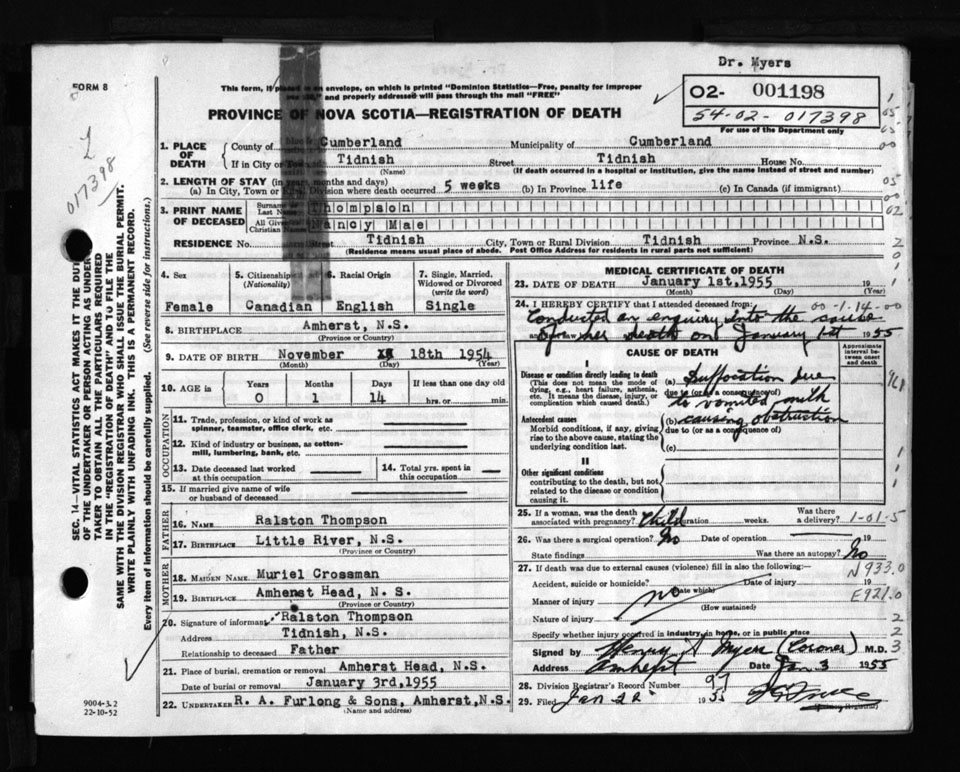 Dr. Myers
FORM 8
This form, if placed in an envelope, on which is printed "Dominion Statistics—Free, penalty for improper
use, and properly addressed will pass through the mail "FREE"
O2- 001198
54-02-017398
For use of the Department only
PROVINCE OF NOVA SCOTIA—REGISTRATION OF DEATH
017398
1. PLACE OF DEATH
County of Cumberland Municipality of Cumberland
If in City or Tidnish Street Tidnish House No.
(Name) (If death occurred in a hospital or institution, give the name instead of street and number)
2. LENGTH OF STAY (in years, months and days)
(a) In City, Town or Rural Division where death occurred 5 weeks (b) In Province life (c) In Canada (if immigrant)
3. PRINT NAME OF DECEASED
Surname or Last Name Thompson
All Given or Christian Names Nancy Mae
RESIDENCE No. Street Tidnish City, Town or Rural Division Tidnish Province N.S.
(Residence means usual place of abode. Post Office Address for residents in rural parts not sufficient)
4. Sex
Female
5. Citizenship
(Nationality)
Canadian
6. Racial Origin
English
7. Single, Married, Widowed or Divorced
(write the word)
Single
8. BIRTHPLACE Amherst, N.S.
(Province or Country)
9. DATE OF BIRTH November 18th 1954
(Month) (Day) (Year)
10. AGE IN
Years Months Days If less than one day old
0 1 14 hrs. or min.
OCCUPATION
11. Trade, profession, or kind of work as spinner, teamster, office clerk, etc.
12. Kind of industry or business, as cotton-mill, lumbering, bank, etc.
13. Date deceased last worked at this occupation
14. Total yrs. spent in this occupation
15. If married give name of wife or husband of deceased
FATHER
16. NAME Ralston Thompson
17. BIRTHPLACE Little River, N.S.
(Province or Country)
MOTHER
18. MAIDEN NAME Muriel Crossman
19. BIRTHPLACE Amherst Head, N. S.
(Province or Country)
20. Signature of informant Ralston Thompson
Address Tidnish, N.S.
Relationship to deceased Father
21. Place of burial, cremation or removal Amherst Head, N.S.
Date of burial or removal January 3rd,1955
22. UNDERTAKER R. A. Furlong & Sons, Amherst,N.S.
(Name and address)
MEDICAL CERTIFICATE OF DEATH
23. DATE OF DEATH January 1st,1955 19
(Month) (Day)
24. I HEREBY CERTIFY that I attended deceased from: 00-1-14-00
Conducted an enquiry into the cause
of her death on January 1st 1955
CAUSE OF DEATH
Approximate interval between onset and death
I
Disease or condition directly leading to death
(This does not mean the mode of dying, e.g., heart failure, asthenia, etc. It means the disease, injury, or complication which caused death.)
(a) Suffocation due
due to (or as a consequence of)
to vomited milk
Antecedent causes
Morbid conditions, if any, giving rise to the above cause, stating the underlying condition last.
(b) causing obstruction
due to (or as a consequence of)
(c)
II
Other significant conditions
contributing to the death, but not related to the disease or condition causing it.
25. If a woman, was the death associated with pregnancy? Child Duration weeks. Was there a delivery? 1-01-5
26. Was there a surgical operation? No Date of operation 19
State findings Was there an autopsy? No
27. If death was due to external causes (violence) fill in also the following:— N933.0
Accident, suicide or homicide? Date of injury 19
(State which) E921.0
Manner of injury no
(How sustained)
Nature of injury
Specify whether injury occurred in industry, in home, or in public place
Signed by Henry S Myers (Coroner) M.D.
Address Amherst Date Jan 3 1955
28. Division Registrar's Record Number 97
29. Filed Jan 22 1955
SEC. 14—VITAL STATISTICS ACT MAKES IT THE DUTY
OF THE UNDERTAKER OR PERSON ACTING AS UNDER-
TAKER TO OBTAIN ALL THE PARTICULARS REQUIRED
IN THE "REGISTRATION OF DEATH" AND TO FILE THE
SAME WITH THE DIVISION REGISTRAR WHO SHALL ISSUE THE BURIAL PERMIT.
WRITE PLAINLY WITH UNFADING INK. THIS IS A PERMANENT RECORD.
Every item of information should be carefully supplied. (See reverse side for instructions.)
9004-3.2
22-10-52